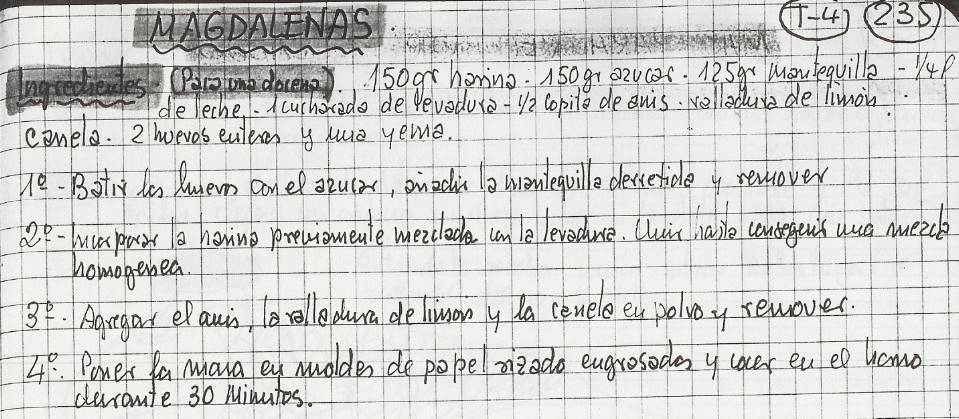 MAGDALENAS T-4 235
Ingredientes (Para una docena). 150gr harina. 150gr azucar. 125gr Mantequilla - 1/4 l
de leche. - 1 cucharada de levadura - 1/2 copita de anis. ralladura de limón.
canela. 2 huevos enteros y una yema.
1º - Batir los huevos con el azucar, añadir la mantequilla derretida y remover
2º - Incorporar la harina previamente mezclada con la levadura. Unir hasta conseguir una mezcla
homogenea.
3º. Agregar el anis, la ralladura de limon y la canela en polvo y remover.
4º. Poner la masa en moldes de papel rizado engrasados y cocer en el horno
durante 30 Minutos.